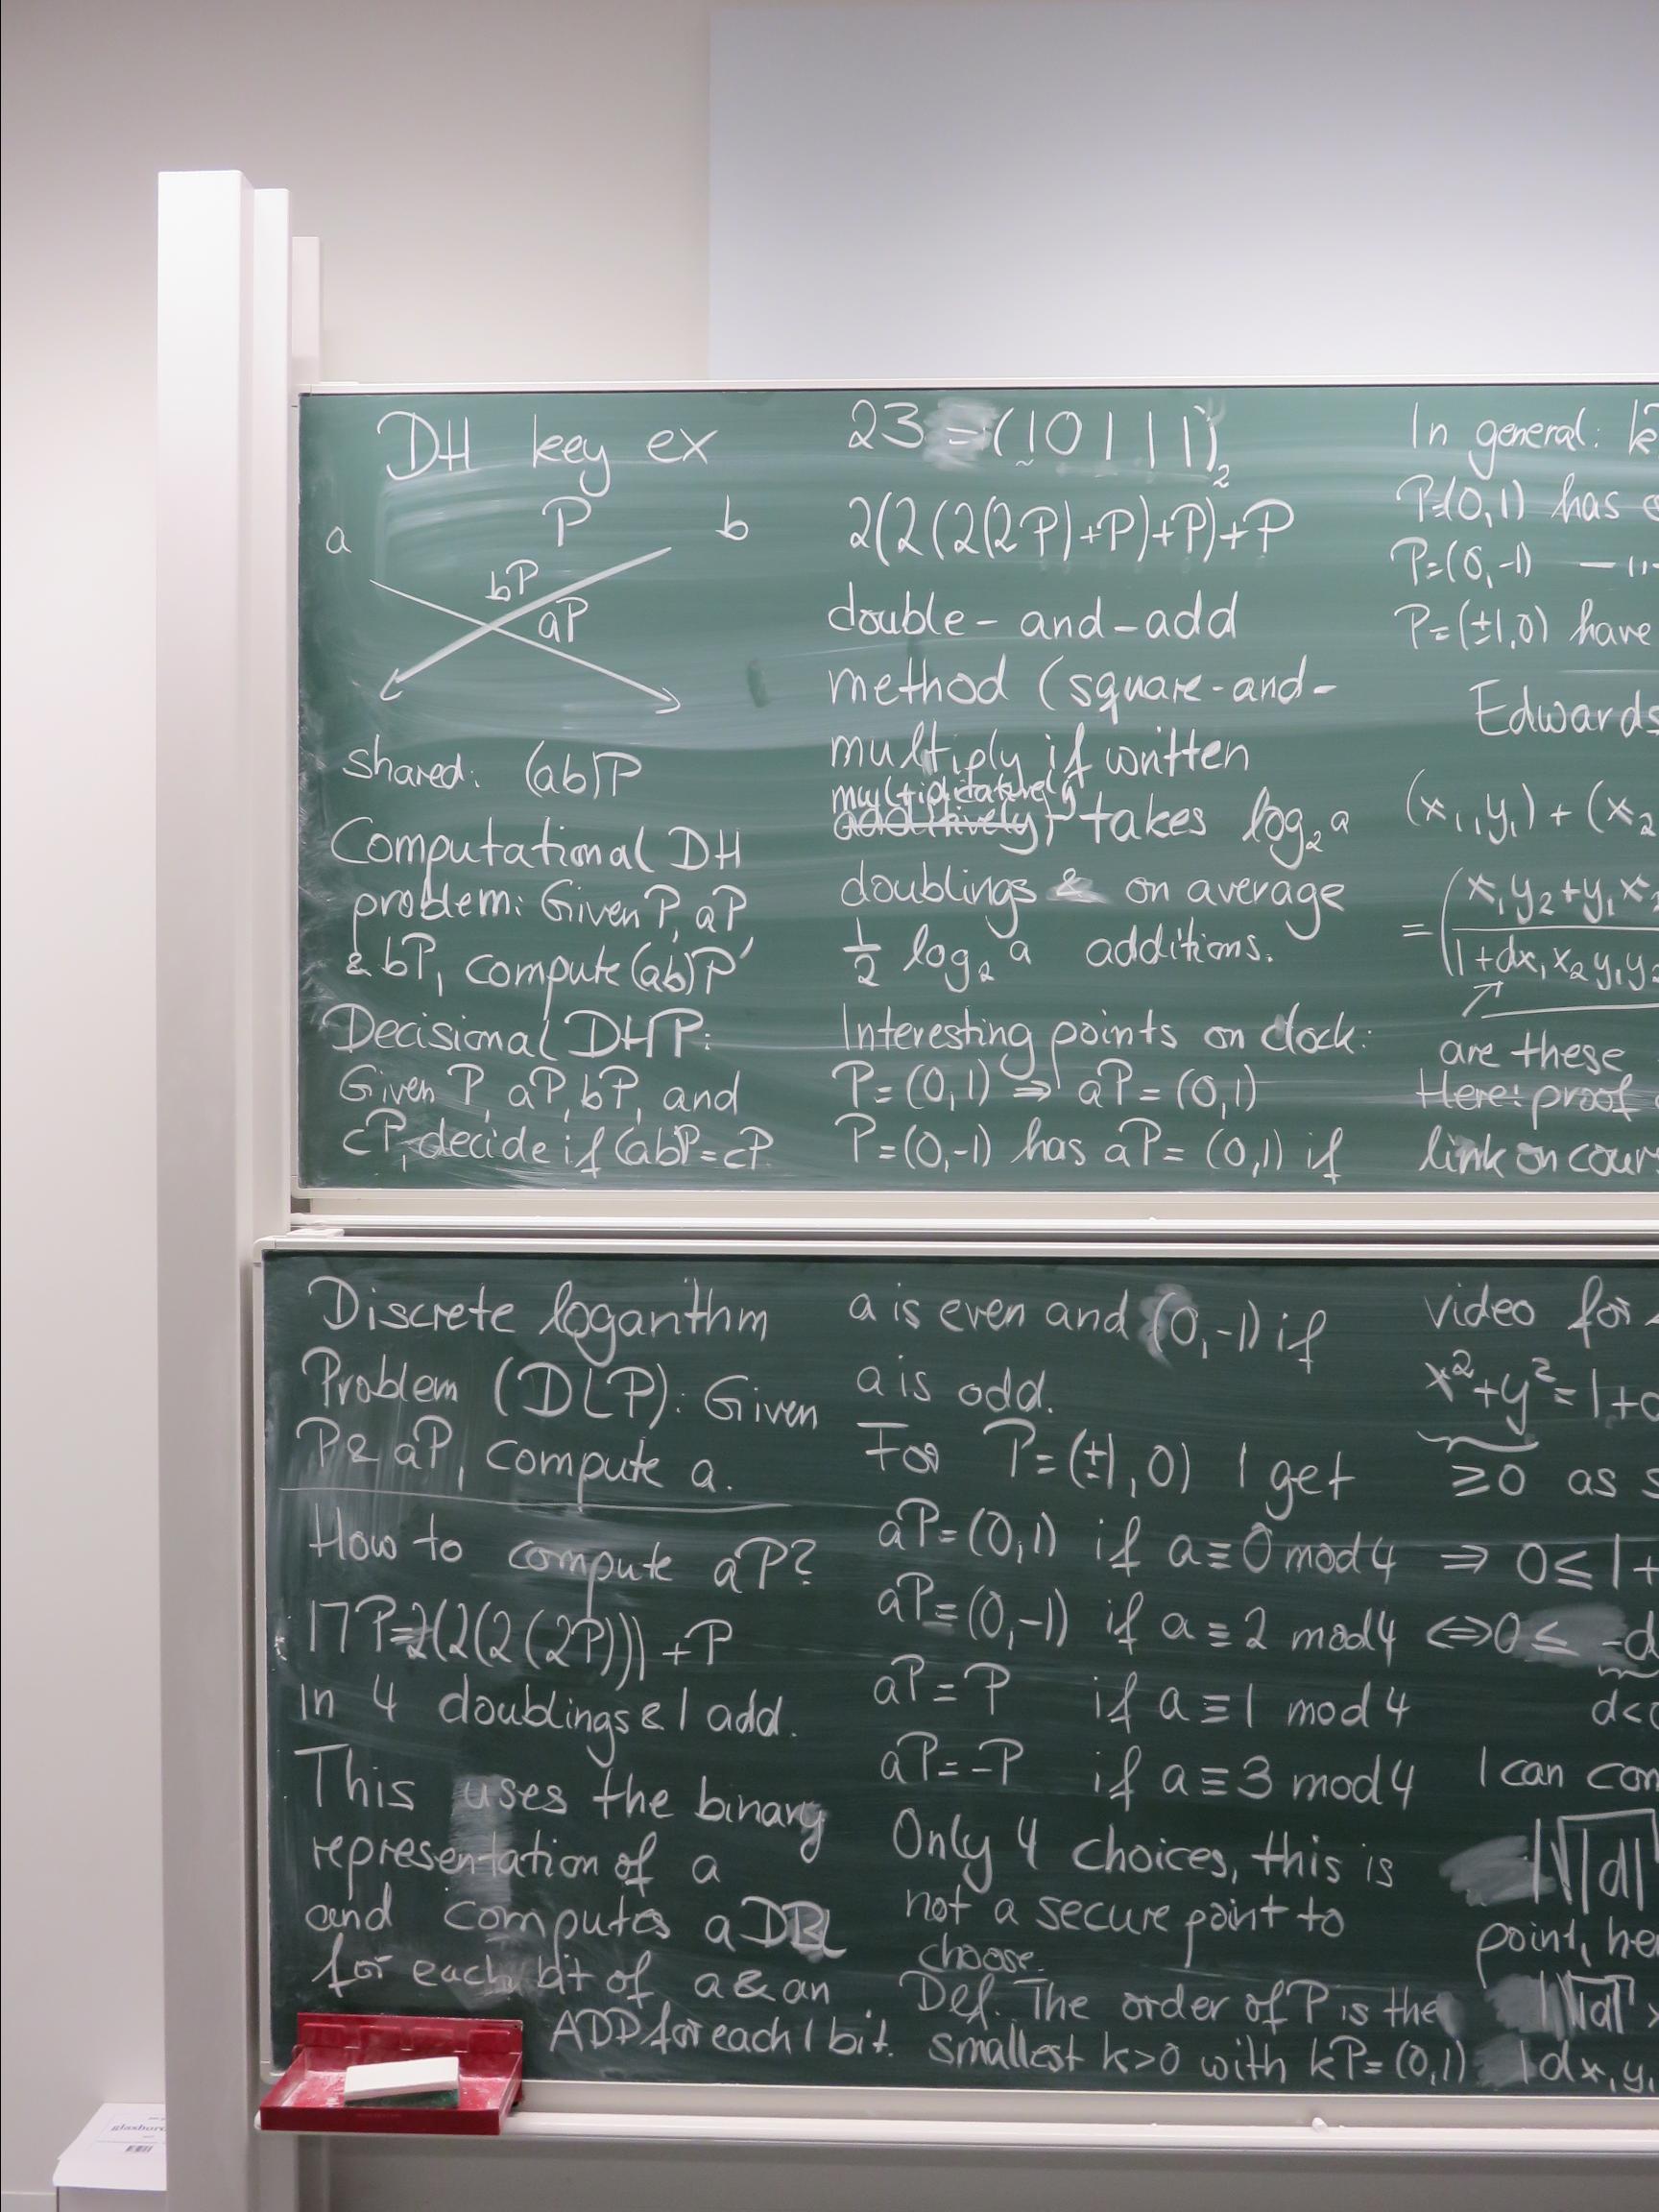 DH key ex
P
a
b
bP
aP
shared: (ab)P
Computational DH
problem: Given P, aP
& bP, compute (ab)P
Decisional DHP:
Given P, aP, bP, and
cP, decide if (ab)P=cP
Discrete logarithm
Problem (DLP): Given
P & aP, compute a.
How to compute aP?
17P=2(2(2(2P))) +P
in 4 doublings & 1 add.
This uses the binary
representation of a
and computes a DBL
for each bit of a & an
ADD for each 1 bit.
23 = (10111)₂
2(2(2(2P)+P)+P)+P
double-and-add
method (square-and-
multiply if written
multiplicatively
additively) takes log₂ a
doublings & on average
½ log₂ a additions.
Interesting points on clock:
P=(0,1) ⇒ aP=(0,1)
P=(0,-1) has aP=(0,1) if
a is even and (0,-1) if
a is odd.
For P=(±1,0) I get
aP=(0,1) if a≡0 mod 4
aP=(0,-1) if a≡2 mod 4
aP=P if a≡1 mod 4
aP=-P if a≡3 mod 4
Only 4 choices, this is
not a secure point to
choose.
Def. The order of P is the
smallest k>0 with kP=(0,1)
In general:
P=(0,1) has
P=(0,-1) -"-
P=(±1,0) have
Edwards
(x₁,y₁) + (x₂
= (x₁y₂+y₁x₂
1+dx₁x₂y₁y₂
are these
Here: proof
link on cours
video for
x²+y²=1+
≥0 as s
⇒ 0≤1+
⇔0≤ -d
d<
I can com
√|d|
point, he
√|d|
|dx₁y₁
glasbord